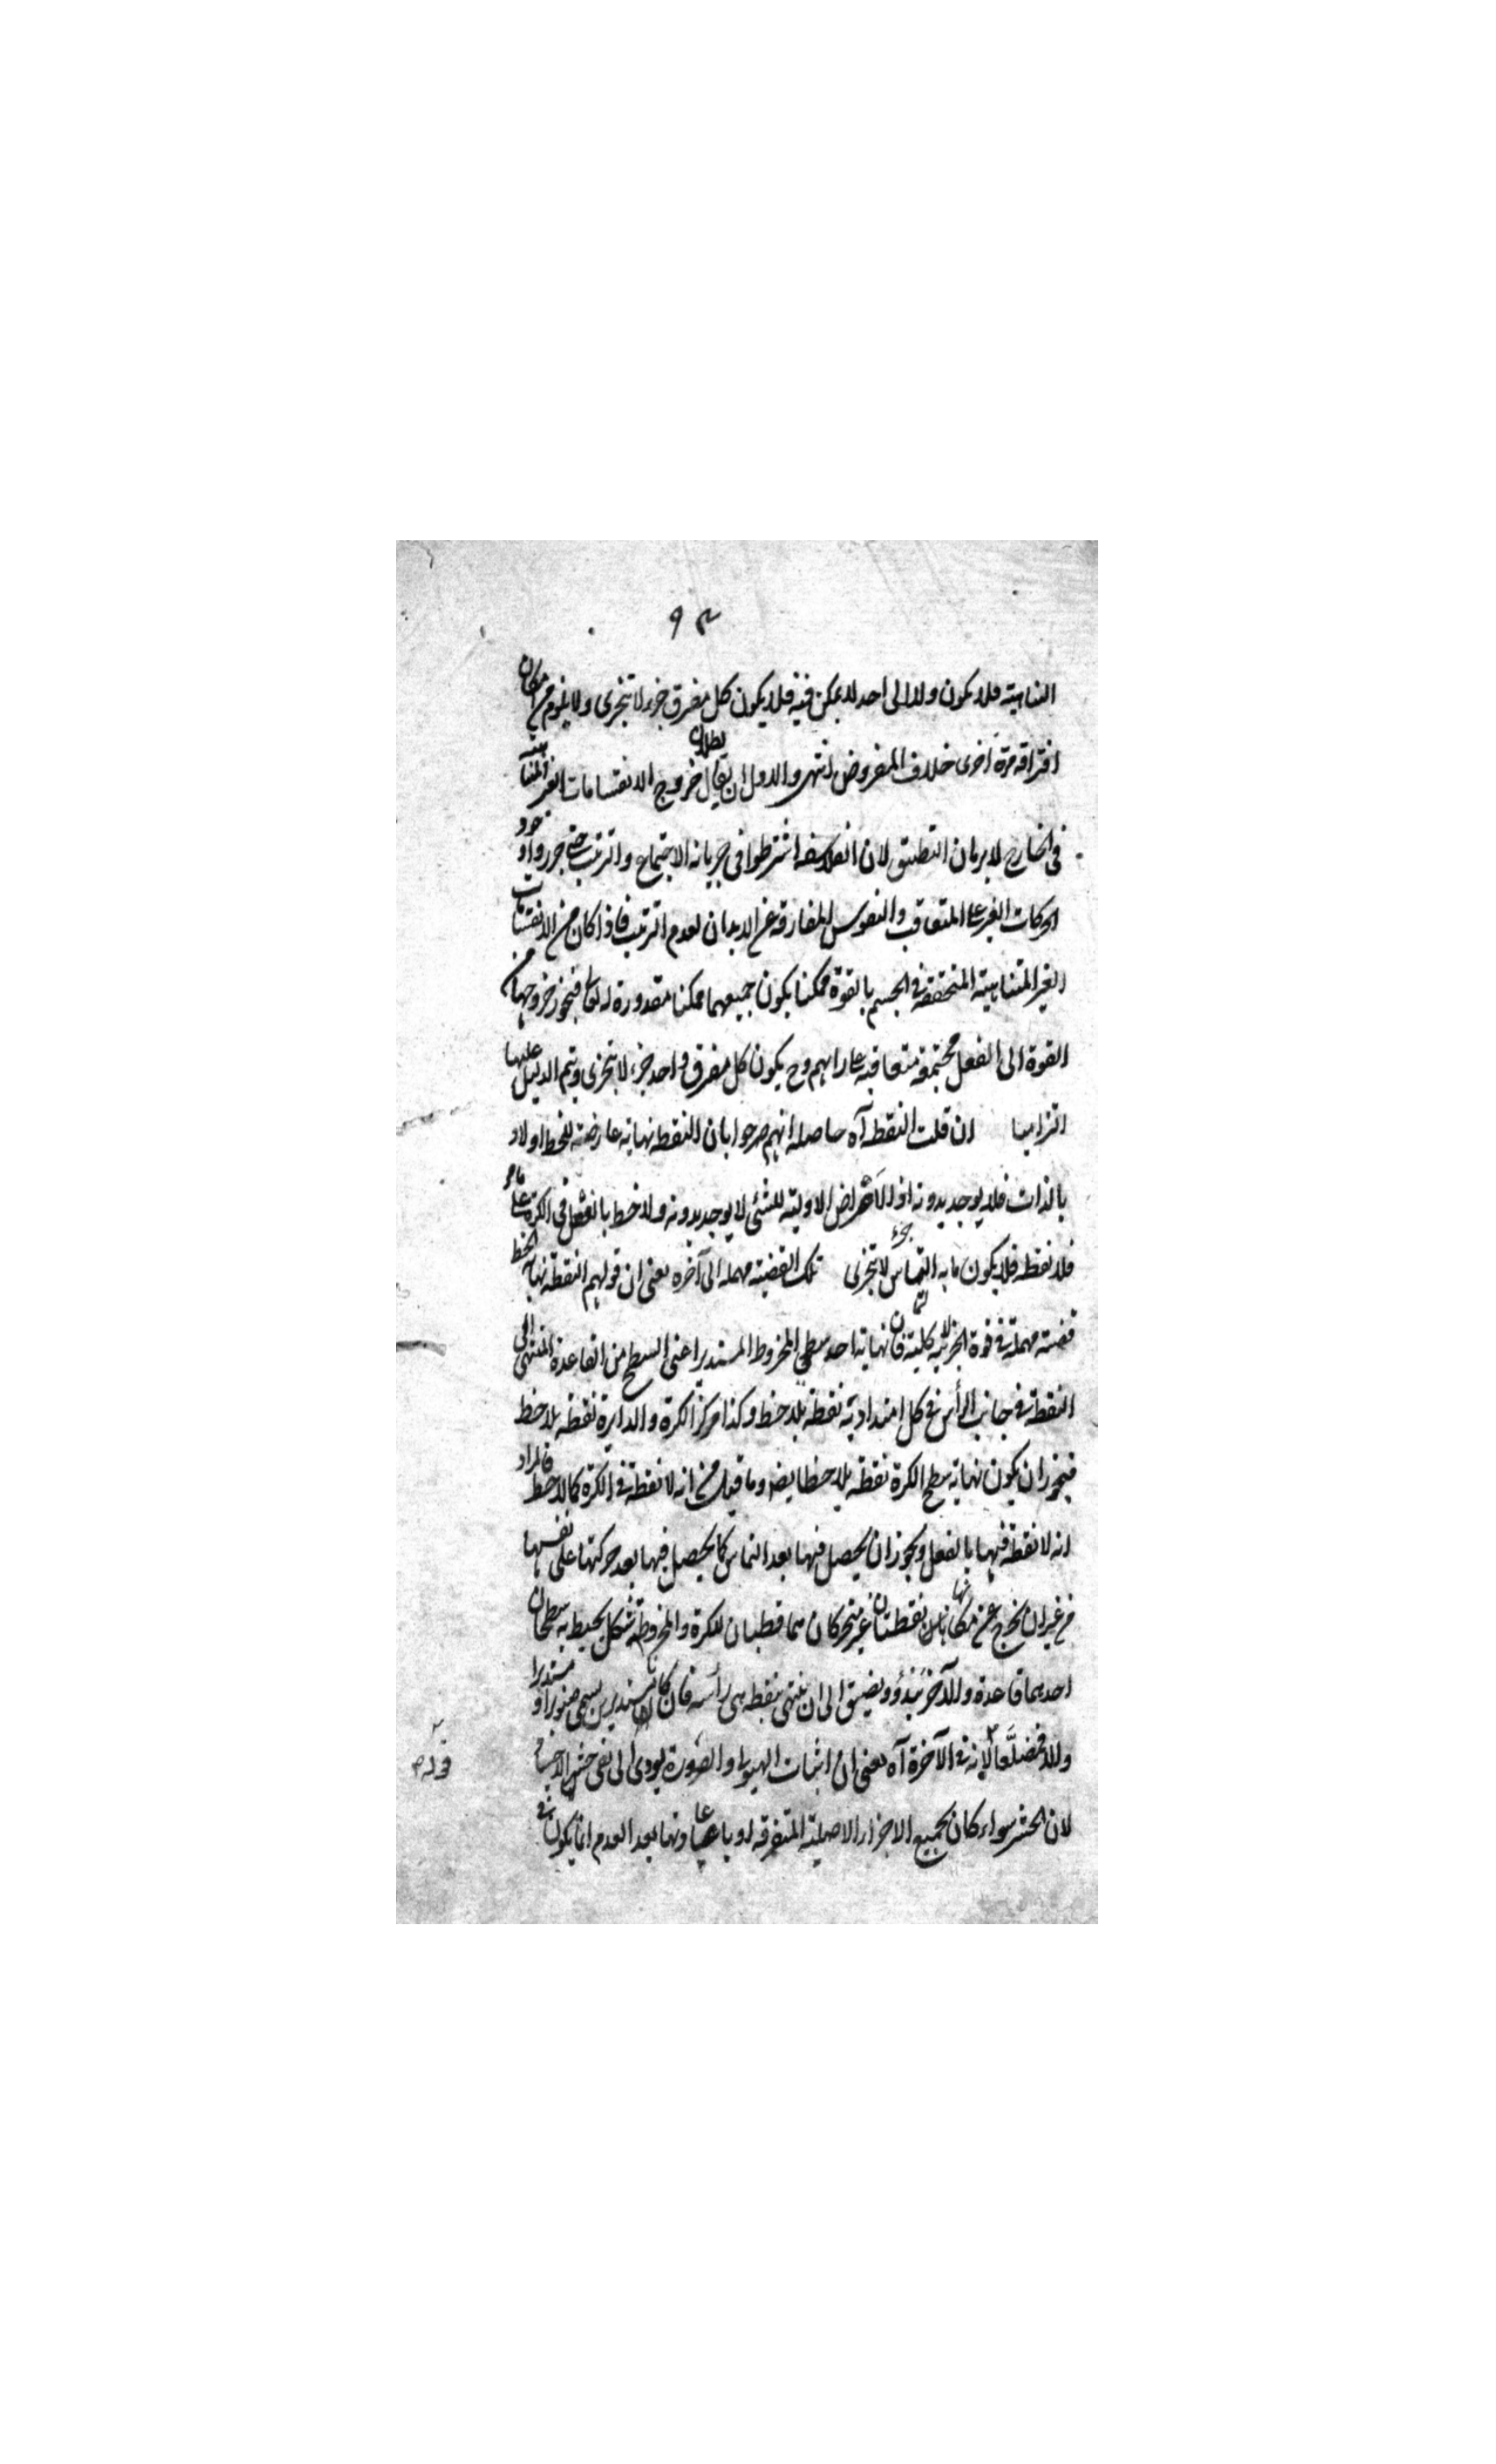 ٩٣
المتناهية فلا يكون ولا الى احد لا يمكن فيه فلا يكون كل مفرق جزء لا يتجزى ولا يلزم من امكان
افتراقه مرة اخرى خلاف المفروض انتهى والاول ان يقال بطلان خروج الانقسامات الغير المتناهية
فى الخارج لا برهان التطبيق لان الفلاسفة اشترطوا فى جريانه الاجتماع والترتب حتى جوزوا وجود
الحركات الغير على المتعاقب والنفوس المفارقة عن الابدان لعدم الترتب فاذا كان من الانقسامات
الغير المتناهية المتحققة فى الجسم بالقوة ممكنا يكون جميعها ممكنا مقدورة له تعالى فيجوز خروجها من
القوة الى الفعل مجتمعة متعاقبة على رايهم وح يكون كل مفرق واحد جزء لا يتجزى ويتم الدليل عليها
الزاميا ان قلت النقطة آه حاصله انهم صرحوا بان النقطة نهاية عارضة للخط اولا و
بالذات فلا يوجد بدونه اذ الاعراض الاولية للشئ لا يوجد بدونه ولا خط بالفعل فى الكرة على ما مر
فلا نقطة فلا يكون ما به التماس جزء لا يتجزى تلك القضية مهملة الى آخره يعنى ان قولهم النقطة نهاية الخط
قضية مهملة فى قوة الجزئية لا كلية فان نهاية احد سطحى المخروط المستدير اعنى السطح من القاعدة المنتهى الى
النقطة فى جانب الرأس فى كل امتدادية نقطة بلا خط وكذا مركز الكرة والدايرة نقطة بلا خط
فيجوز ان يكون نهاية سطح الكرة نقطة بلا خط ايضا وما قيل من انه لا نقطة فى الكرة كما لا خط فالمراد
انه لا نقطة فيها بالفعل ويجوز ان يحصل فيها بعد التماس كما يحصل فيها بعد حركتها على نفسها
من غير ان يخرج عن مكانها نقطتان غير متحركان هما قطبان للكرة والمخروط شكل يحيط به سطحان
احديهما قاعدة والآخر يبتدؤ ويضيق الى ان ينتهى بنقطة هى رأسه فان كانا مستديرين يسمى صنوبرا او مستديرا
والا فمضلعا لانه فى الآخرة آه يعنى ان اثبات الهيولى والصورة يودى الى نفى حشر الاجساد
قوله
لان الحشر سواء كان بجميع الاجزاء الاصلية المتفرقة او باعادتها بعد العدم انما يكون فى